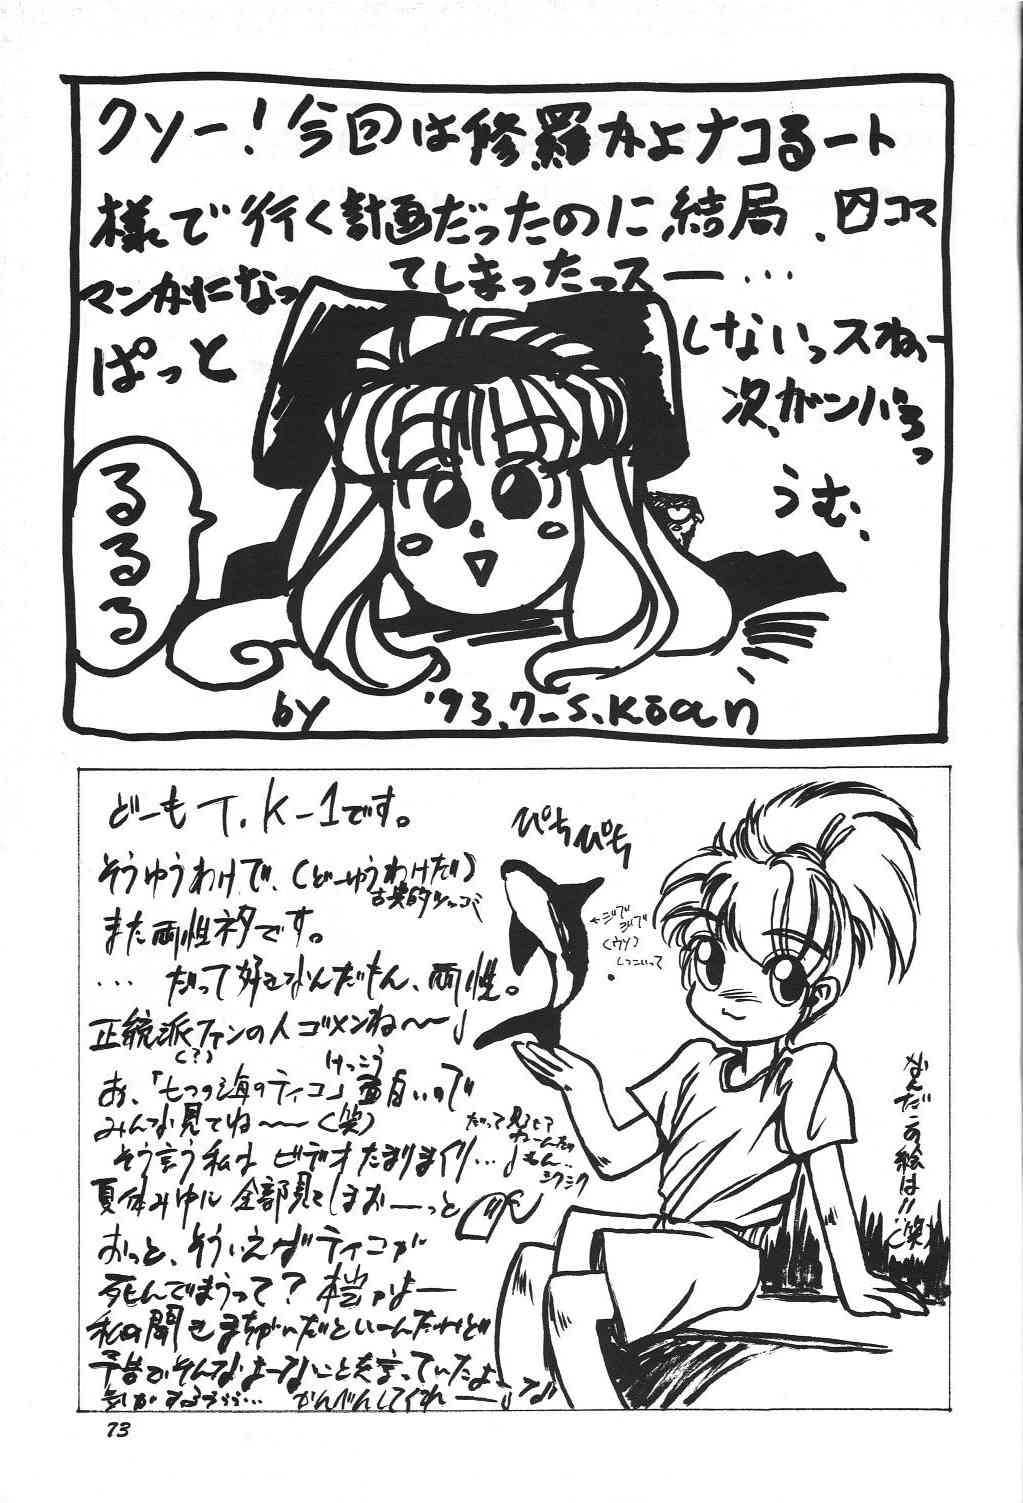 クソー!今回は修羅かよナコるート
様で行く計画だったのに、結局、四コマ
マンガになっ
てしまったっスー…
ぱっと
しないっスねー
次、ガンバろっ
うむ、
るるる
by '93.7-S.Kōan
どーもT.K-1です。
そうゆうわけで、(どーゆうわけだ)
古典的ツッコミ
また両性ネタです。
…だって好きなんだもん、両性。
正統派ファンの人ゴメンね〜〜♪
(?)
あ、「七つの海のティコ」けっこう面白いので
みんな見てね〜〜(笑)
そう言う私は ビデオたまりまくり…♪
だって見るヒマ
もん…
シクシク
夏休みゆに全部見てしまおーーっと
おっと、そういえばティコが
死んでまうって?本当かよー
私の聞きまちがいだといーんだけど
予告でそんなよーなことを言っていたよーな
気がするううう… かんべんしてくれー
ぴちぴち
←ジブ
ジブ
(ウソ)
しつこいって
なんだこの絵は!!(笑)
73